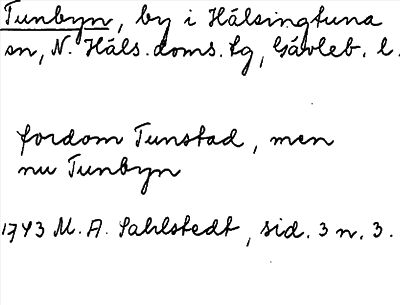 Tunbyn, by i Hälsingtuna
sn, N. Häls. doms. lg, Gävleb. l.
fordom Tunstad, men
nu Tunbyn
1743 M. A. Sahlstedt, sid. 3 n. 3.